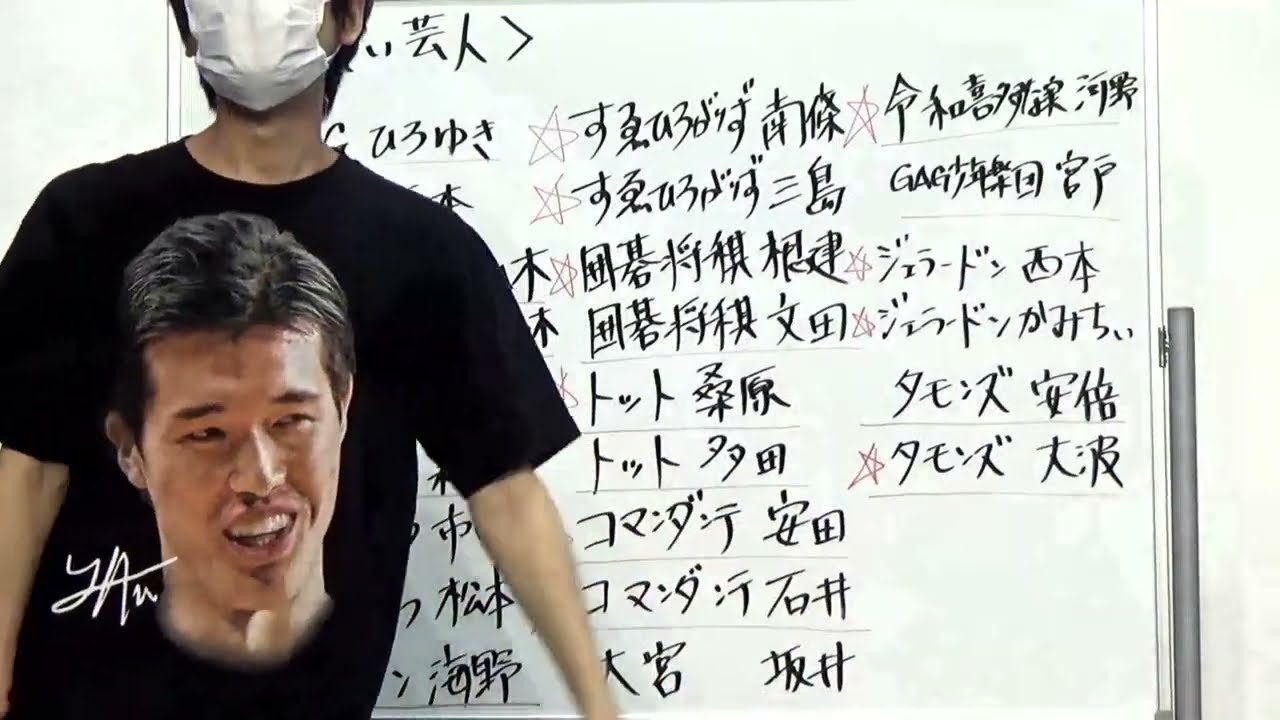 い芸人＞
G ひろゆき
本
木
木
市
つ 松本
ン 海野
☆すゑひろがりず 南條
☆すゑひろがりず 三島
☆囲碁将棋 根建
囲碁将棋 文田
☆トット 桑原
トット 多田
コマンダンテ 安田
コマンダンテ 石井
大宮 坂井
☆令和喜多みな実 河野
GAG少年楽団 宮戸
☆ジェラードン 西本
☆ジェラードン かみちぃ
タモンズ 安倍
☆タモンズ 大波